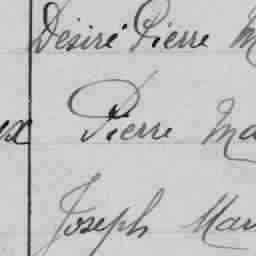 Désiré Pierre M
ex Pierre Ma
Joseph Mar